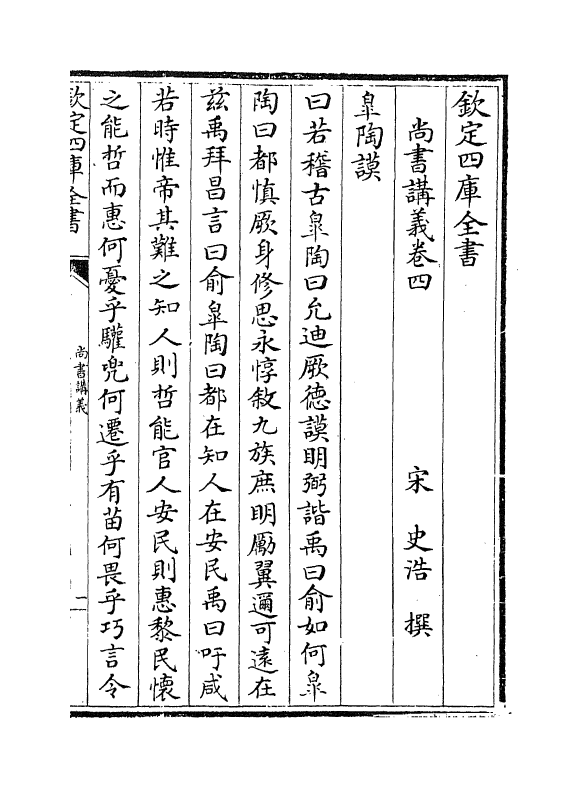 欽定四庫全書
尚書講義卷四
宋 史浩 撰
臯陶謨
曰若稽古臯陶曰允迪厥德謨明弼諧禹曰俞如何臯
陶曰都慎厥身修思永惇敘九族庶明勵翼邇可遠在
兹禹拜昌言曰俞臯陶曰都在知人在安民禹曰吁咸
若時惟帝其難之知人則哲能官人安民則惠黎民懷
之能哲而惠何憂乎驩兜何遷乎有苗何畏乎巧言令
欽定四庫全書
尚書講義